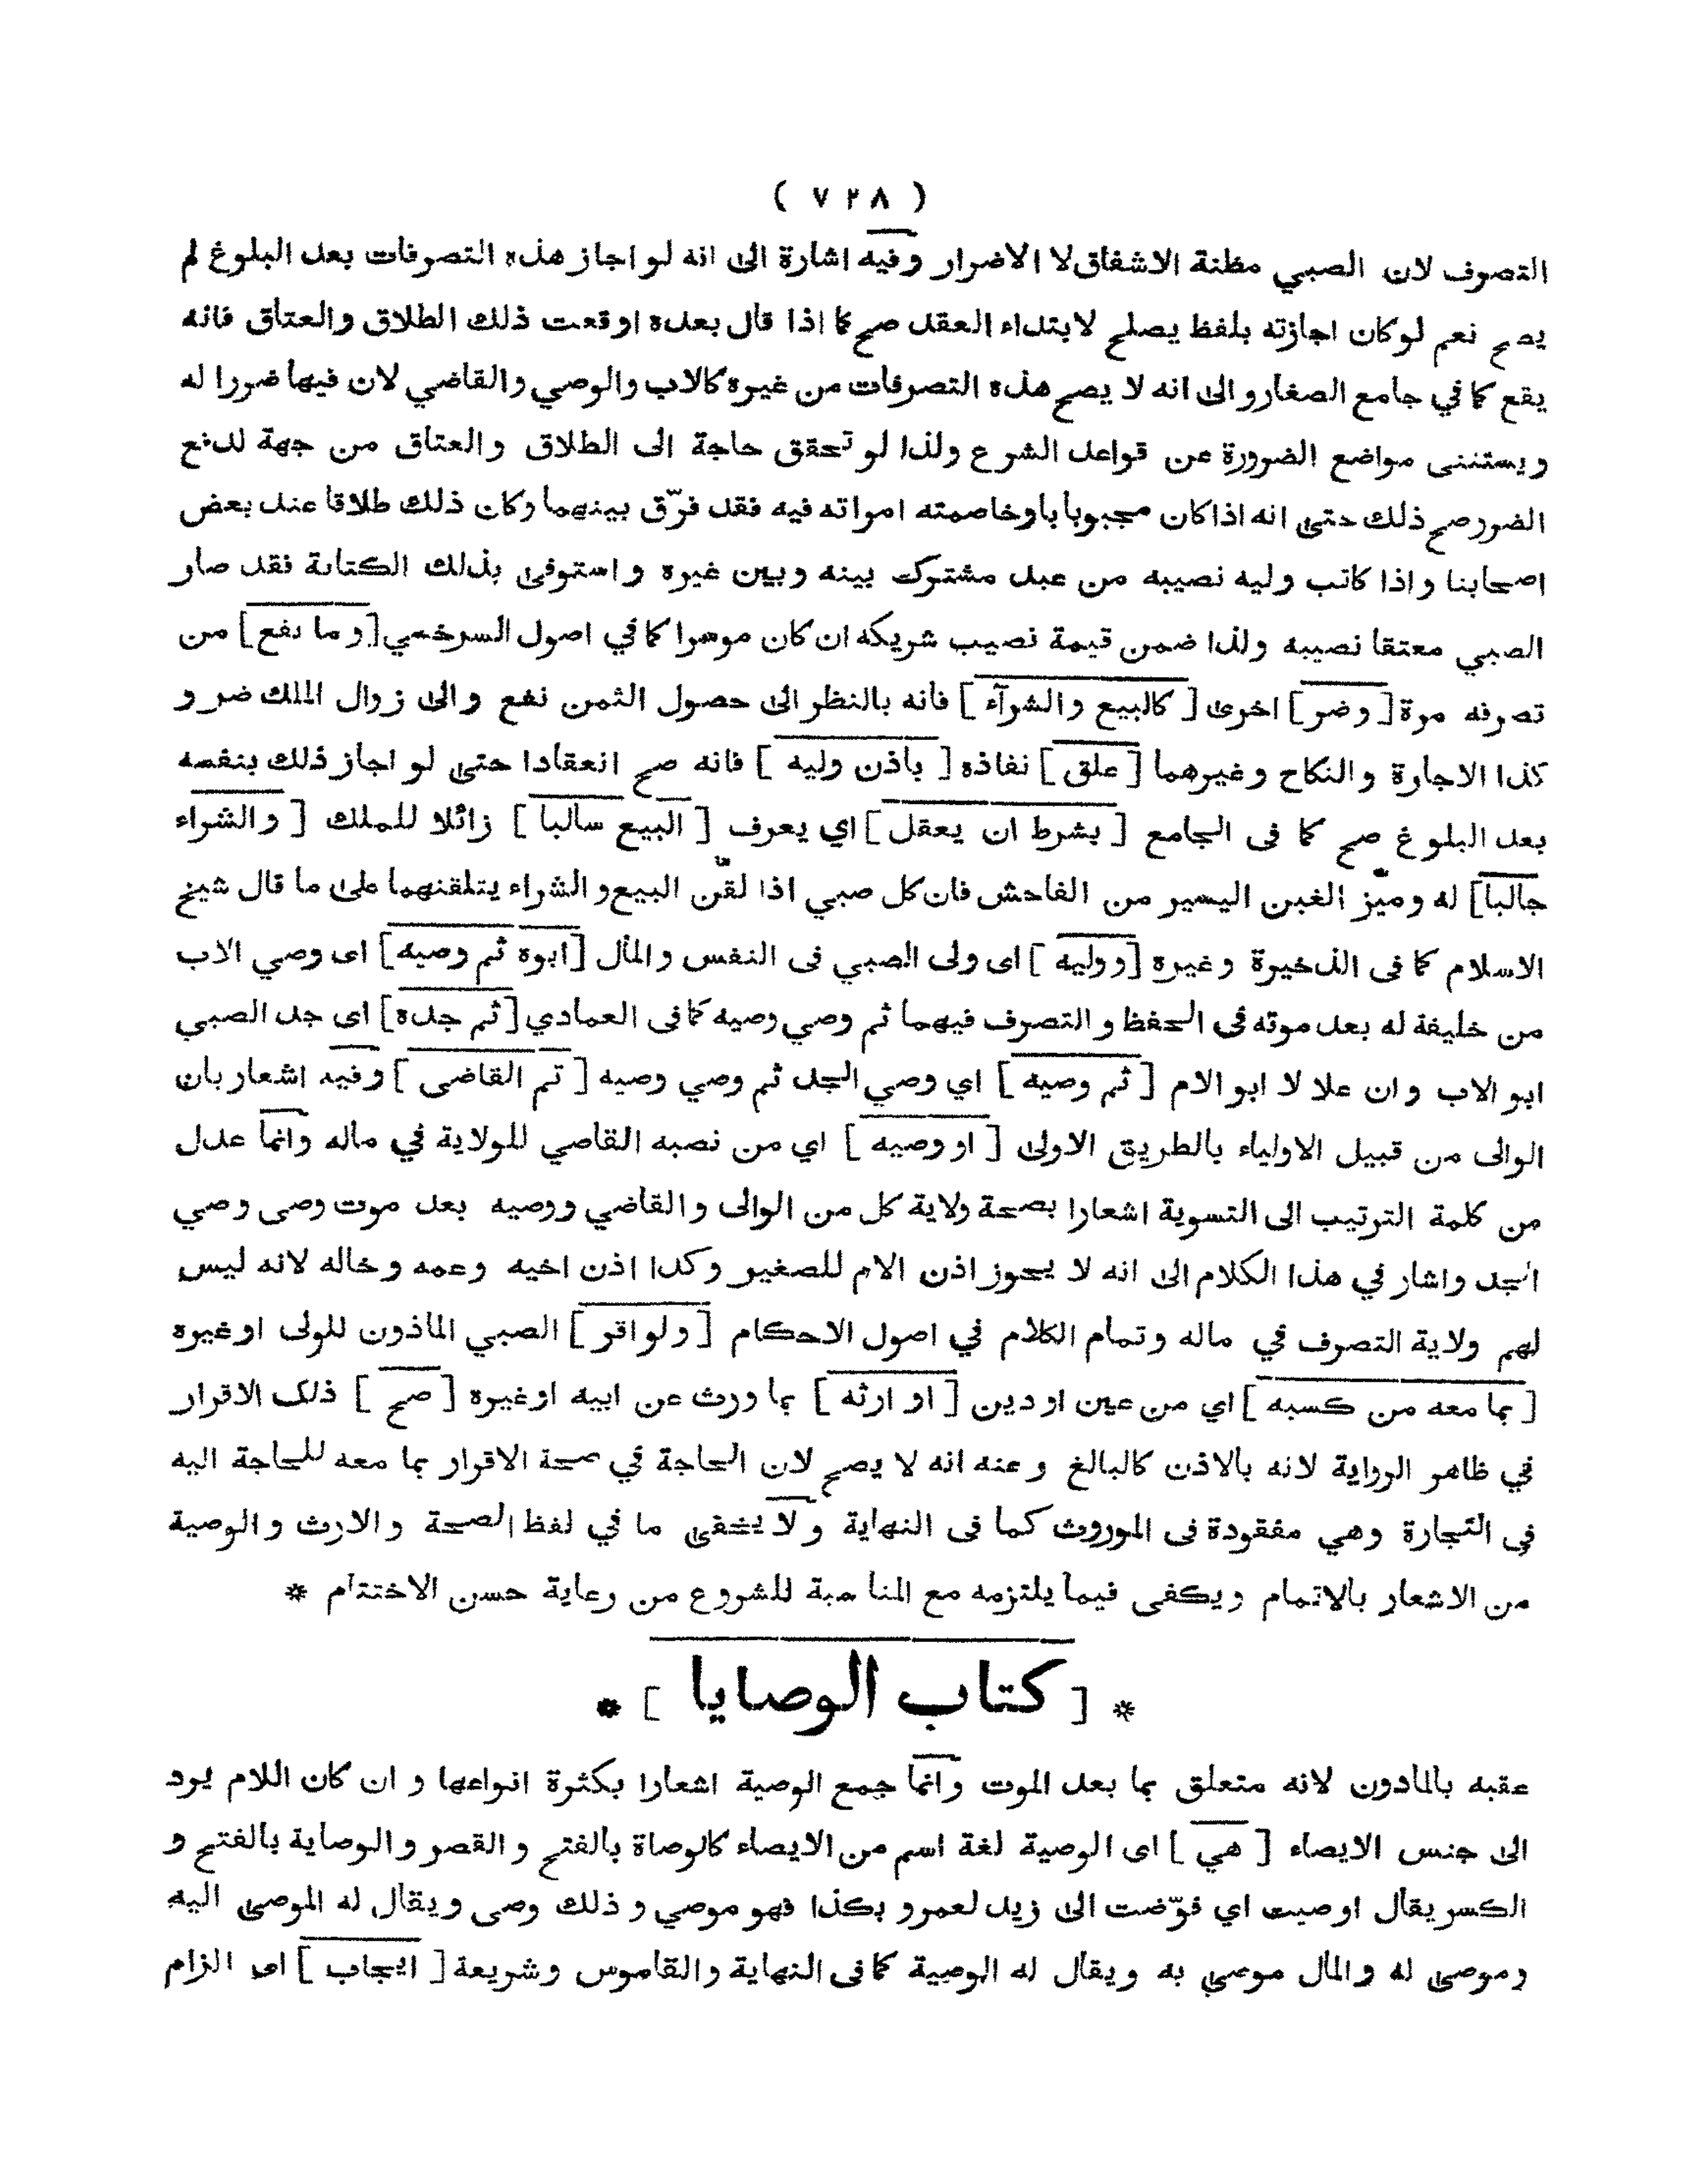 ( ٧٢٨ )
التصرف لان الصبي مظنة الاشفاق لا الاضرار وفيه اشارة الى انه لو اجاز هذه التصرفات بعد البلوغ لم
يصح نعم لو كان اجازته بلفظ يصلح لابتداء العقد صح كما اذا قال بعده اوقعت ذلك الطلاق والعتاق فانه
يقع كما في جامع الصغار والى انه لا يصح هذه التصرفات من غيره كالاب والوصي والقاضي لان فيها ضررا له
ويستثنى مواضع الضرورة عن قواعد الشرع ولذا لو تحقق حاجة الى الطلاق والعتاق من جهة لدفع
الضرر صح ذلك حتى انه اذا كان مجبوبا وخاصمته امراته فيه فقد فرّق بينهما وكان ذلك طلاقا عند بعض
اصحابنا واذا كاتب وليه نصيبه من عبد مشترك بينه وبين غيره واستوفى بذلك الكتابة فقد صار
الصبي معتقا نصيبه ولذا ضمن قيمة نصيب شريكه ان كان موسرا كما في اصول السرخسي [وما نفع] من
تصرفه مرة [وضر] اخرى [كالبيع والشرآء] فانه بالنظر الى حصول الثمن نفع والى زوال الملك ضر و
كذا الاجارة والنكاح وغيرهما [علق] نفاذه [باذن وليه] فانه صح انعقادا حتى لو اجاز ذلك بنفسه
بعد البلوغ صح كما فى الجامع [بشرط ان يعقل] اي يعرف [البيع سالبا] زائلا للملك [والشراء
جالبا] له وميّز الغبن اليسير من الفاحش فان كل صبي اذا لقّن البيع و الشراء يتلقنهما على ما قال شيخ
الاسلام كما فى الذخيرة وغيره [ووليه] اى ولى الصبي فى النفس والمال [ابوه ثم وصيه] اى وصي الاب
من خليفة له بعد موته فى الحفظ و التصرف فيهما ثم وصي وصيه كما فى العمادي [ثم جده] اى جد الصبي
ابو الاب وان علا لا ابو الام [ثم وصيه] اي وصي الجد ثم وصي وصيه [ثم القاضى] وفيه اشعار بان
الوالى من قبيل الاولياء بالطريق الاولى [او وصيه] اي من نصبه القاضي للولاية في ماله وانما عدل
من كلمة الترتيب الى التسوية اشعارا بصحة ولاية كل من الوالى والقاضي ووصيه بعد موت وصى وصي
الجد واشار في هذا الكلام الى انه لا يجوز اذن الام للصغير وكذا اذن اخيه وعمه وخاله لانه ليس
لهم ولاية التصرف في ماله وتمام الكلام في اصول الاحكام [ولو اقر] الصبي الماذون للولى او غيره
[بما معه من كسبه] اي من عين او دين [او ارثه] بما ورث عن ابيه او غيره [صح] ذلك الاقرار
في ظاهر الرواية لانه بالاذن كالبالغ وعنه انه لا يصح لان الحاجة في صحة الاقرار بما معه للحاجة اليه
فى التجارة وهي مفقودة فى الموروث كما فى النهاية ولا يخفى ما في لفظ الصحة والارث والوصية
من الاشعار بالاتمام ويكفى فيما يلتزمه مع المناسبة للشروع من رعاية حسن الاختتام *
* [كتاب الوصايا] *
عقبه بالماذون لانه متعلق بما بعد الموت وانما جمع الوصية اشعارا بكثرة انواعها و ان كان اللام يرد
الى جنس الايصاء [هي] اى الوصية لغة اسم من الايصاء كالوصاة بالفتح و القصر و الوصاية بالفتح و
الكسر يقال اوصيت اي فوّضت الى زيد لعمرو بكذا فهو موصي و ذلك وصى ويقال له الموصى اليه
وموصى له والمال موصى به ويقال له الوصية كما فى النهاية والقاموس وشريعة [ايجاب] اى الزام